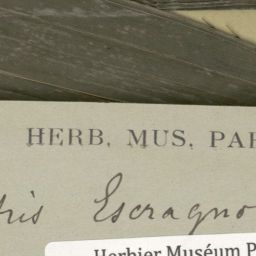 HERB. MUS. PAR
tris Escragno
Herbier Muséum P